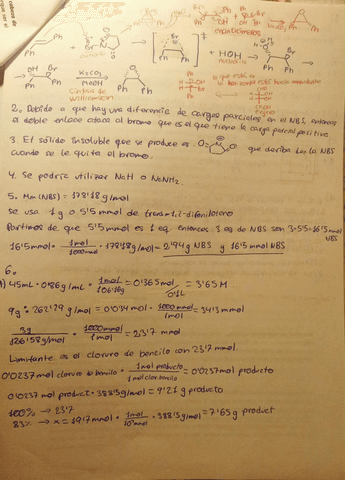 Ph
OH
Br
Ph
enantiómeros
+ HOH
Ph
K₂CO₃
MeOH
Síntesis de
Williamson
2. Debido a que hay una diferencia de cargas parciales en el NBS, entonces
el doble enlace ataca al bromo que es el que tiene la carga parcial positiva
3. El sólido insoluble que se produce es que deriba de la NBS
cuando se le quita el bromo.
4. Se podría utilizar NaH o NaNH₂.
5. Mm(NBS) = 178'18 g/mol
se usa 1 g o 5'5 mmol de trans-1,2-difenileteno
Partimos de que 5'5 mmol es 1 eq. entonces 3 eq de NBS son 3·5'5 = 16'5 mmol
NBS
16'5 mmol · 1 mol / 1000 mmol · 178'18 g/mol = 2'94 g NBS y 16'5 mmol NBS
6.
45 mL · 0'86 g/mL · 1 mol / 106'16 g = 0'365 mol / 0'1 L = 3'65 M
9 g ÷ 262'29 g/mol = 0'034 mol · 1000 mmol / 1 mol = 34'3 mmol
3 g / 126'58 g/mol · 1000 mmol / 1 mol = 23'7 mmol
Limitante es el cloruro de bencilo con 23'7 mmol.
0'0237 mol cloruro de bencilo · 1 mol producto / 1 mol clor. bencilo = 0'0237 mol producto
0'0237 mol product · 388'5 g/mol = 9'21 g producto
100% → 23'7
83% → x = 19'7 mmol · 1 mol / 10³ mmol · 388'5 g/mol = 7'65 g product